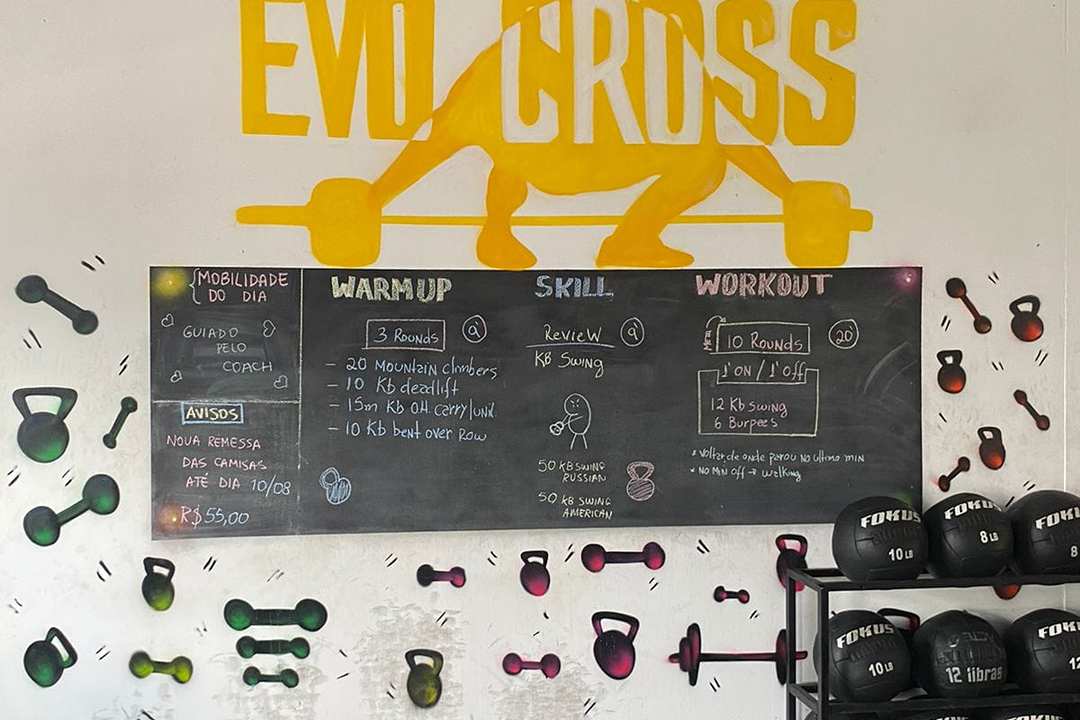 EVO CROSS
MOBILIDADE
DO DIA
GUIADO
PELO
COACH
AVISOS
NOVA REMESSA
DAS CAMISAS
ATÉ DIA 10/08
R$55,00
WARMUP
3 Rounds 9'
- 20 MOUNTAIN climbers
- 10 Kb deadlift
- 15m Kb OH. carry/unil.
- 10 Kb bent over Row
SKILL
RevieW 9'
KB Swing
50 KB SWING
RUSSIAN
50 KB SWING
AMERICAN
WORKOUT
10 Rounds 20'
1' ON / 1' Off
12 Kb swing
6 Burpees
* Voltar de onde parou NO ultimo MIN
* NO MIN Off → walking
FOKUS
10 LB
FOKUS
8 LB
FOKUS
8
FOKUS
10 LB
12 libras
FOKUS
12